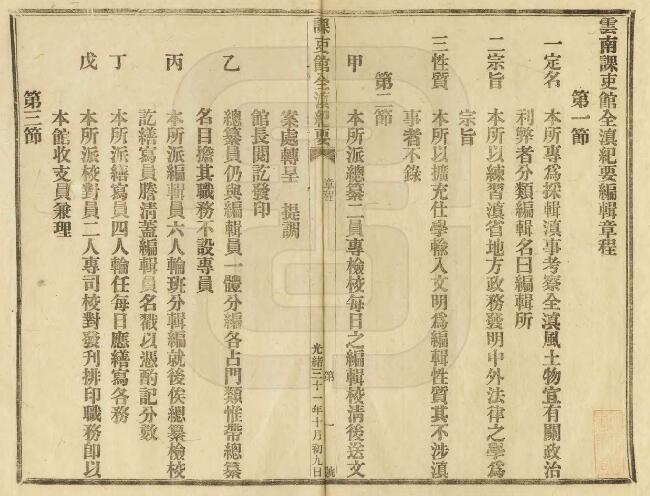 雲南課吏館全滇紀要編輯章程
第一節
一定名　本所專爲採輯滇事考察全滇風土物宜有關政治
利弊者分類編輯名曰編輯所
二宗旨　本所以練習滇省地方政務發明中外法律之學爲
宗旨
三性質　本所以擴充仕學輸入文明爲編輯性質其不涉滇
事者不錄
第二節
甲　本所派總纂二員專檢校每日之編輯校清後送文
課吏館全滇紀要　章程　第一號　光緒三十一年十月初九日
案處轉呈　提調
館長閱訖發印
乙　總纂員仍與編輯員一體分編各占門類惟帶總纂
名目擔其職務不設專員
丙　本所派編輯員六人輪班分輯編就後俟總纂檢校
訖繕寫員謄清蓋編輯員名戳以憑酌記分數
丁　本所派繕寫員四人輪任每日應繕寫各務
戊　本所派校對員二人專司校對發刊排印職務卽以
本館收支員兼理
第三節